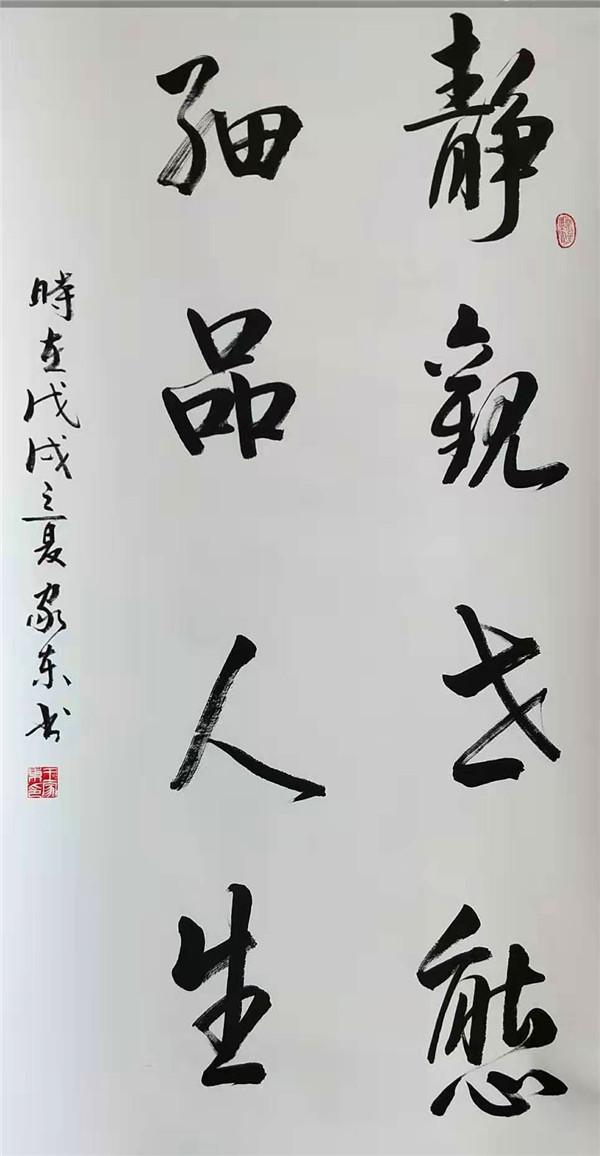 靜觀世態
細品人生
時在戊戌之夏家东书